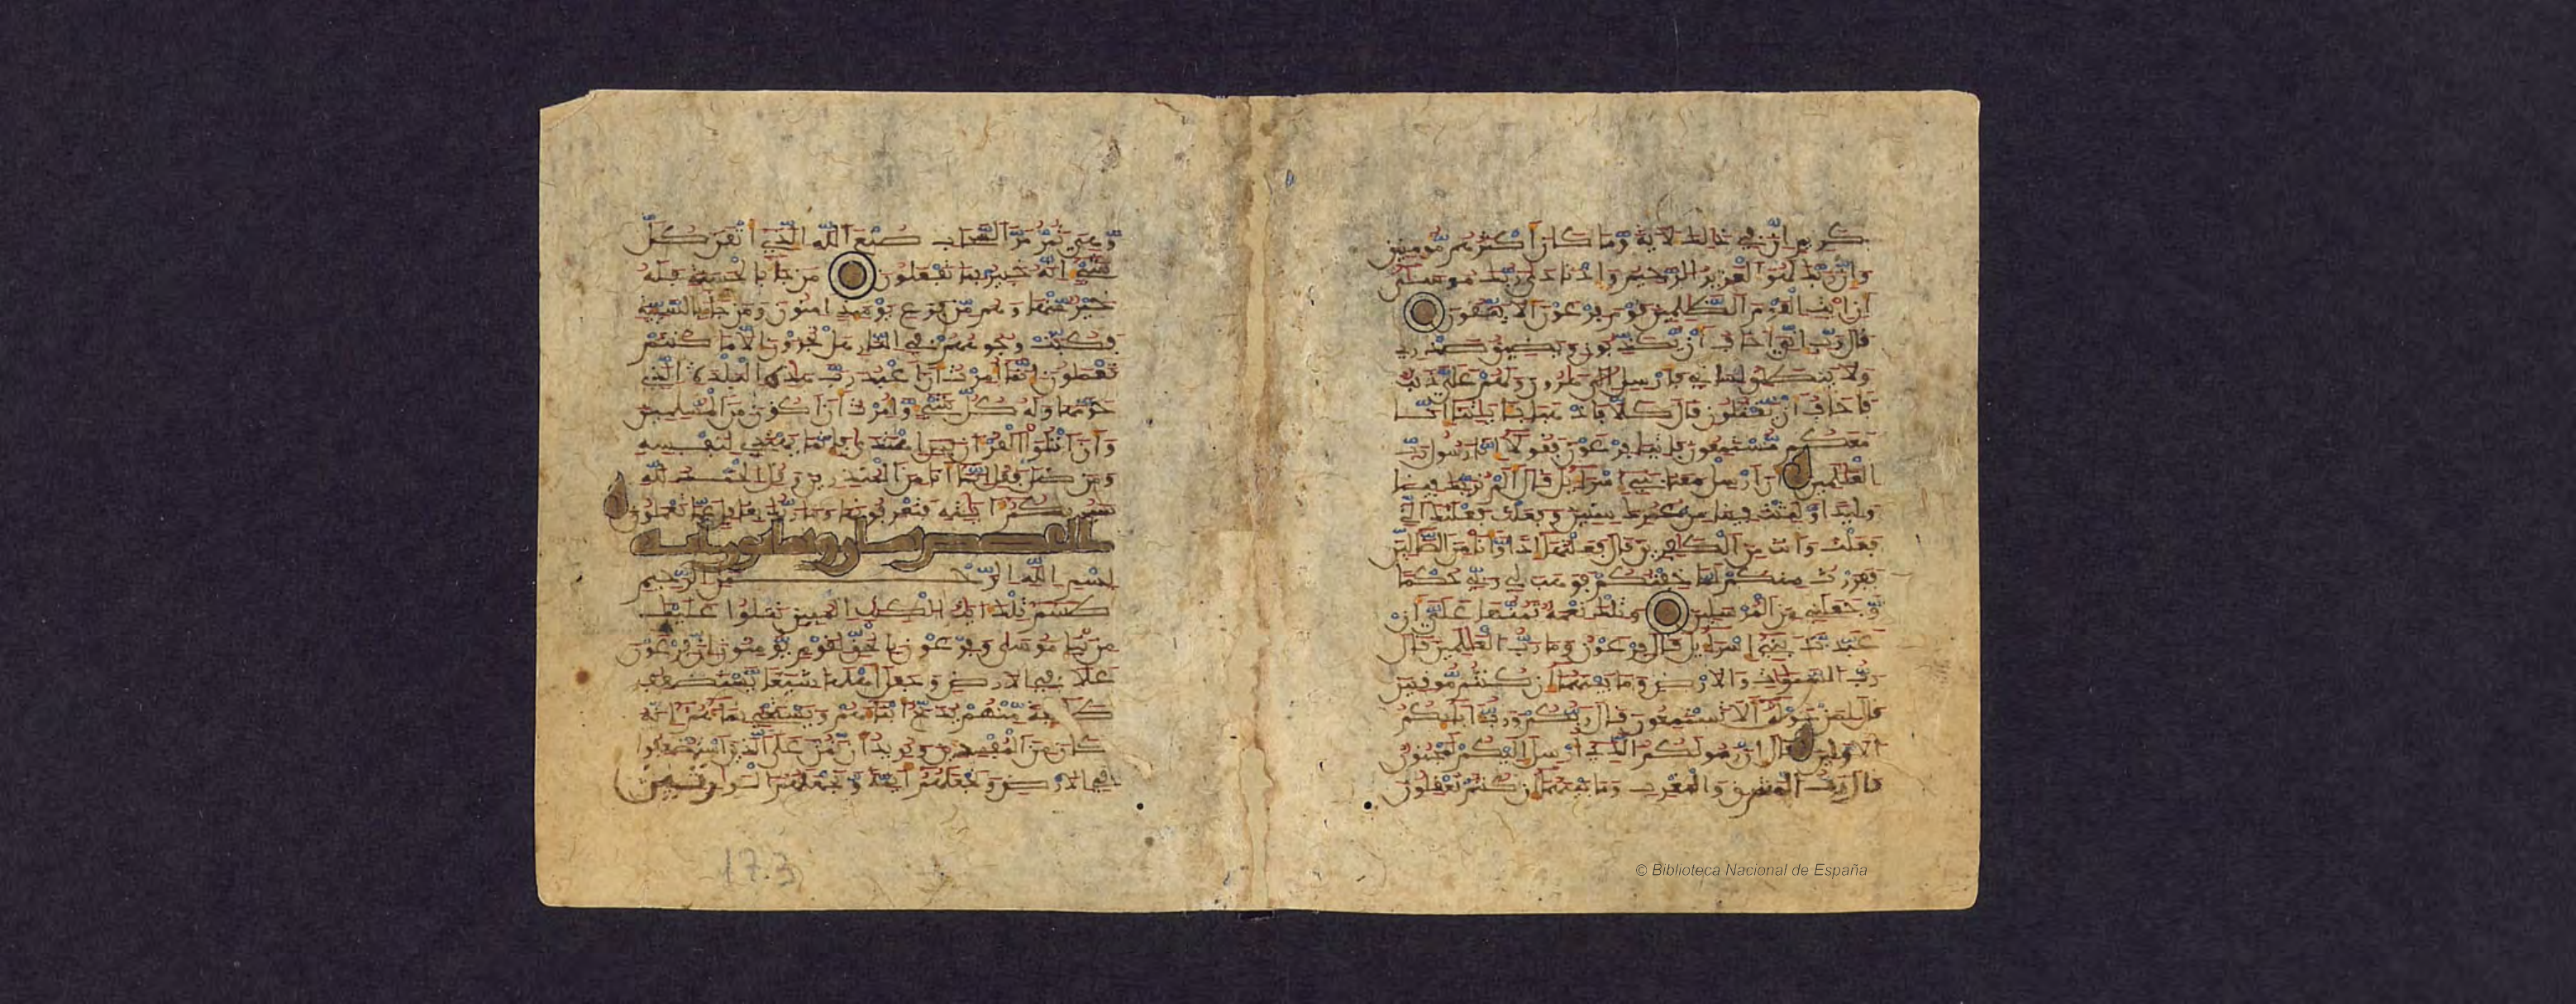 كريم ان في ذلك لاية وما كان اكثرهم مومنين
وان ربك لهو العزيز الرحيم واذ نادى ربك موسى
ان ايت القوم الظلمين قوم فرعون الا يتقون
قال رب اني اخاف ان يكذبون ويضيق صدري
ولا ينطلق لساني فارسل الى هرون ولهم علي ذنب
فاخاف ان يقتلون قال كلا فاذهبا بايتنا انا
معكم مستمعون فاتيا فرعون فقولا انا رسول رب
العلمين ان ارسل معنا بني اسرايل قال الم نربك فينا
وليدا ولبثت فينا من عمرك سنين وفعلت فعلتك التي
فعلت وانت من الكفرين قال فعلتها اذا وانا من الضالين
ففررت منكم لما خفتكم فوهب لي ربي حكما
وجعلني من المرسلين وتلك نعمة تمنها علي ان
عبدت بني اسرايل قال فرعون وما رب العلمين قال
رب السموات والارض وما بينهما ان كنتم موقنين
قال لمن حوله الا تستمعون قال ربكم ورب ابايكم
الاولين قال ان رسولكم الذي ارسل اليكم لمجنون
قال رب المشرق والمغرب وما بينهما ان كنتم تعقلون
وهي تمر مر السحاب صنع الله الذي اتقن كل
شي انه خبير بما تفعلون من جا بالحسنة فله
خير منها وهم من فزع يومئذ امنون ومن جا بالسيئة
فكبت وجوههم في النار هل تجزون الا ما كنتم
تعملون انما امرت ان اعبد رب هذه البلدة الذي
حرمها وله كل شي وامرت ان اكون من المسلمين
وان اتلوا القران فمن اهتدى فانما يهتدي لنفسه
ومن ضل فقل انما انا من المنذرين وقل الحمد لله
سيريكم ايته فتعرفونها وما ربك بغفل عما تعملون
القصص
بسم الله الرحمن الرحيم
طسم تلك ايت الكتب المبين نتلوا عليك
من نبا موسى وفرعون بالحق لقوم يومنون ان فرعون
علا في الارض وجعل اهلها شيعا يستضعف
طايفة منهم يذبح ابناهم ويستحي نساهم انه
كان من المفسدين ونريد ان نمن على الذين استضعفوا
في الارض ونجعلهم ايمة ونجعلهم الورثين
17.3
© Biblioteca Nacional de España